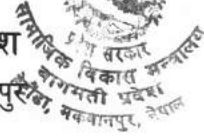 श
सामाजिक विकास मन्त्रालय
प्रदेश सरकार
बागमती प्रदेश
मकवानपुर, नेपाल